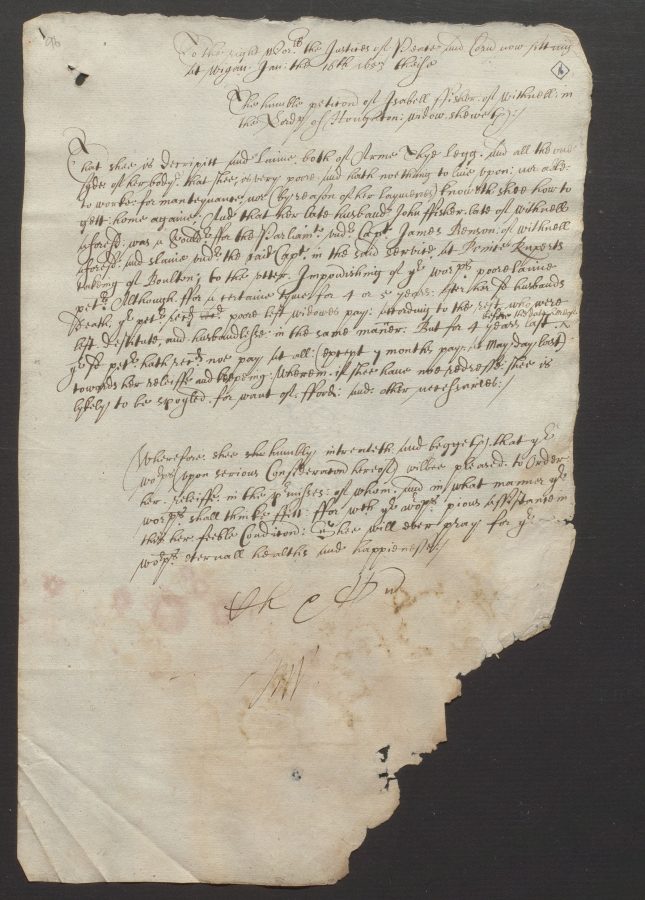 To the right Wor:ll the Justices of Peace and Coram now sitting
at Wigan: Jan: the 16th these
The humble peticon of Isabell ffisher: of Withnell: in
the Lordp of Houghton: widow sheweth:
That shee is decripitt and Laime both of Arme Thye Legg: and all the one
syde of her body: that shee is very poore and hath nothing to live upon: nor able
to worke: for mantenance nor (by reason of her laymenes) knoweth shee how to
gett home againe: And that her late husband John ffisher: late of Withnell
aforesd: was a Souldr: for the Parliamt: undr Capt: James Benson: of Withnell
aforesd: and slaine undr the said Capt: in the said service at Prince Ruperts
taking of Boulton: to the utter Impovrishing of yr worpps poore laime
petr: Although for a certaine tyme for 4 or 5 yeares: after her sd husbands
Death: yr petr: recd poore lost widowes pay: according to the rest who were
left destitute, and husbandlesse in the same maner: But for 4 years last
yr sd petr: hath recd noe pay at all: (except 7 months pay, at May day last)
towards her releiffe and keeping: Wherein if shee have noe redresse shee is
likely to be spoyled for want of ffood: and other necessaries:
Wherefore shee humbly intreateth and beggeth that yr
worpps (upon serious Consideracon hereof) wilbee pleased to Order
her releiffe in the premisses: of whom: and in what manner yr
worpps: shall thinke fitt: ffor with yr worpps: pious assistance in
this her feeble Condicon: Shee will ever pray for yr
worpps eternall healths and happienesse: